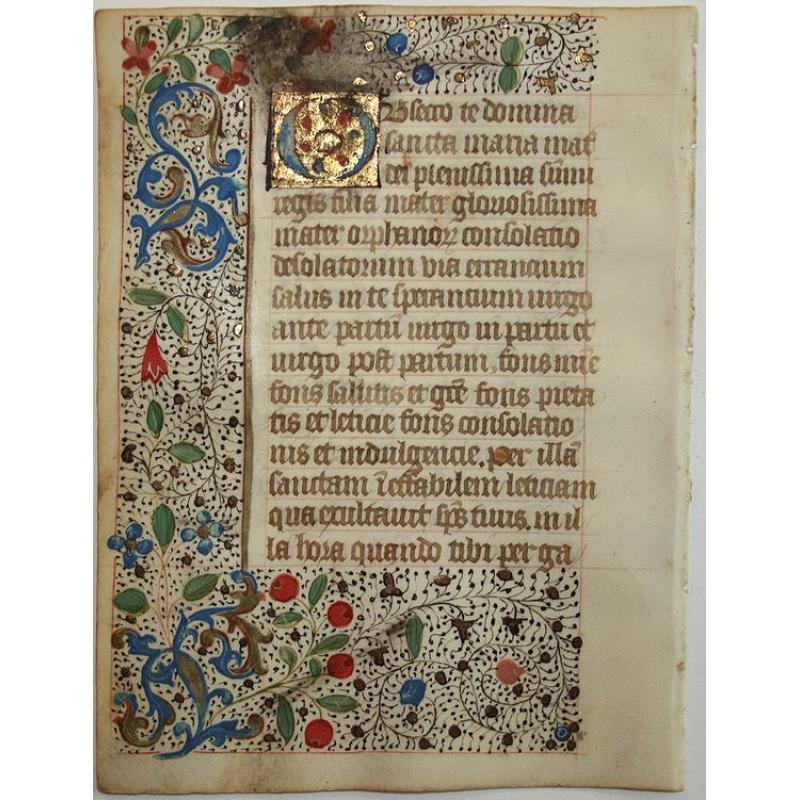 Obsecro te domina
sancta maria mat
dei plenissima sūmi
regis filia mater gloriosissima
mater orphanoꝝ consolatio
desolatorum via errancium
salus in te sperancium uirgo
ante partū uirgo in partu et
uirgo post partum, fons mīe
fons salutis et grē fons pieta
tis et leticie fons consolatio
nis et indulgencie. per illā
sanctam īeffabilem leticiam
qua exultauit sp̄s tuus. in il
la hora quando tibi per ga